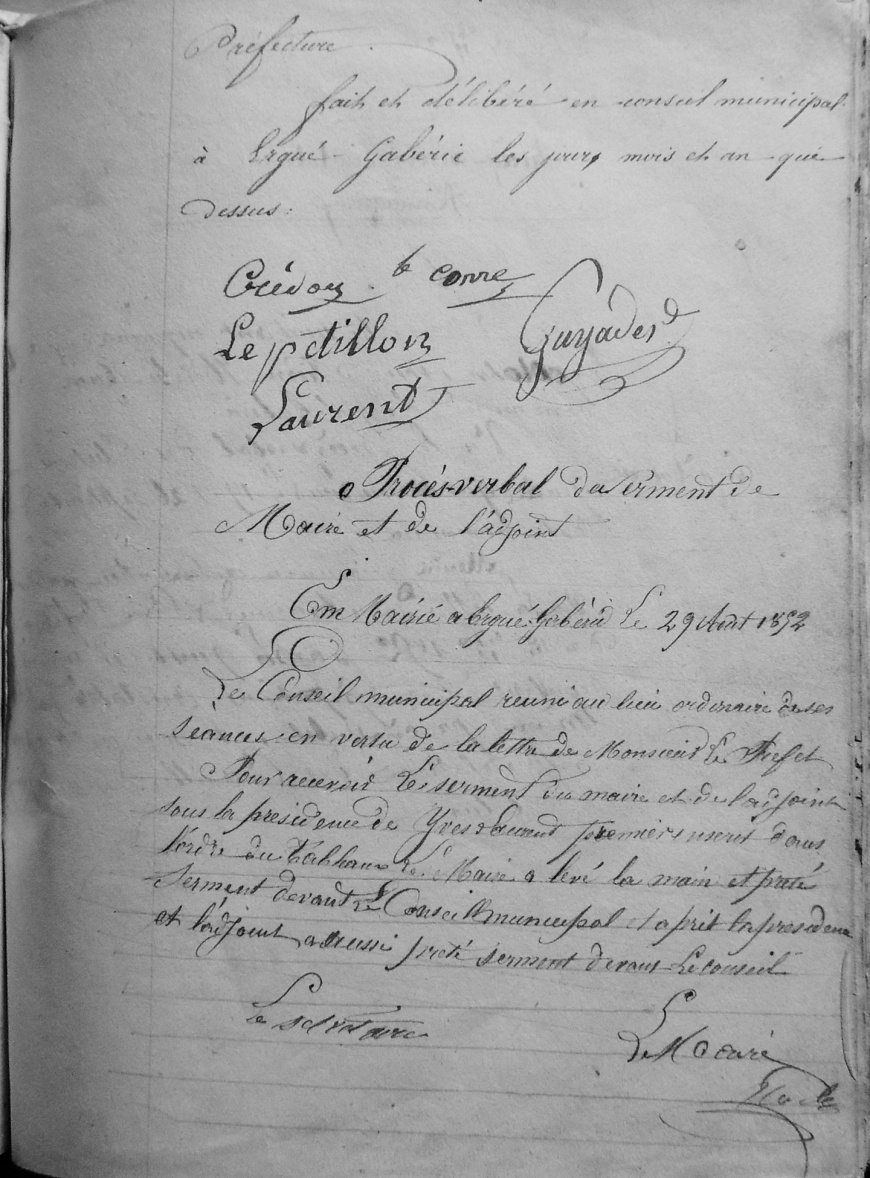 Préfecture
fait et délibéré en conseil municipal
à Ergué-Gabéric les jours mois et an que
dessus :
Crédou le corre
Le pétillon Guyader
Laurent
Procès-verbal du serment de
Maire et de l'adjoint
En Mairie a Ergué-Gabéric Le 29 Aout 1852
Le Conseil municipal reuni au lieu ordinaire de ses
séances en vertu de la lettre de Monsieur Le Prefet
Pour recevoir Le serment du maire et de l'adjoint
sous la presidence de Yves Laurent premier inscrit dans
l'ordre du tableau Le Maire a levé la main et preté
serment devant Le Conseil municipal et a prit la presidence
et l'adjoint a aussi preté serment devant Le conseil
Le secretaire
Le Maire